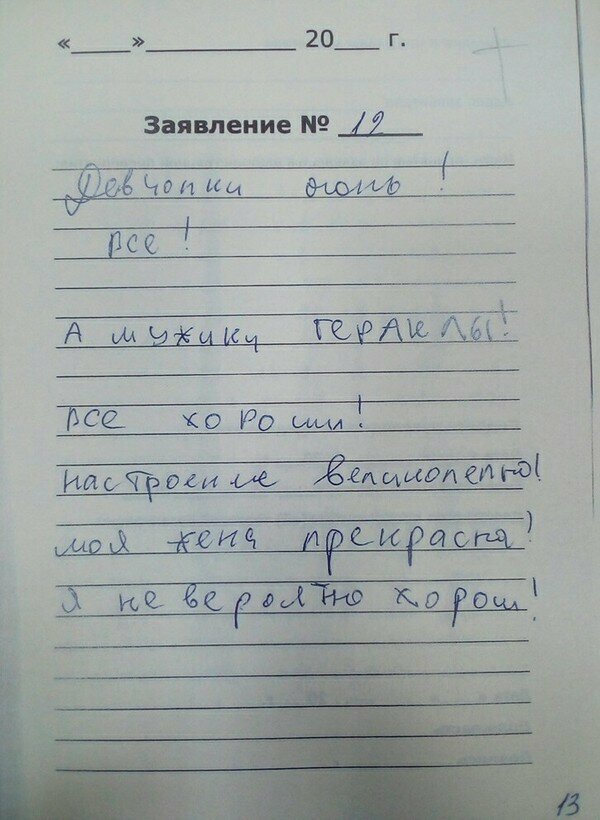 «____»____________ 20___ г.
Заявление № 12
Девчонки огонь!
все!
А мужики гераклы!
все хороши!
настроение великолепно!
моя жена прекрасна!
Я не вероятно хорош!
13